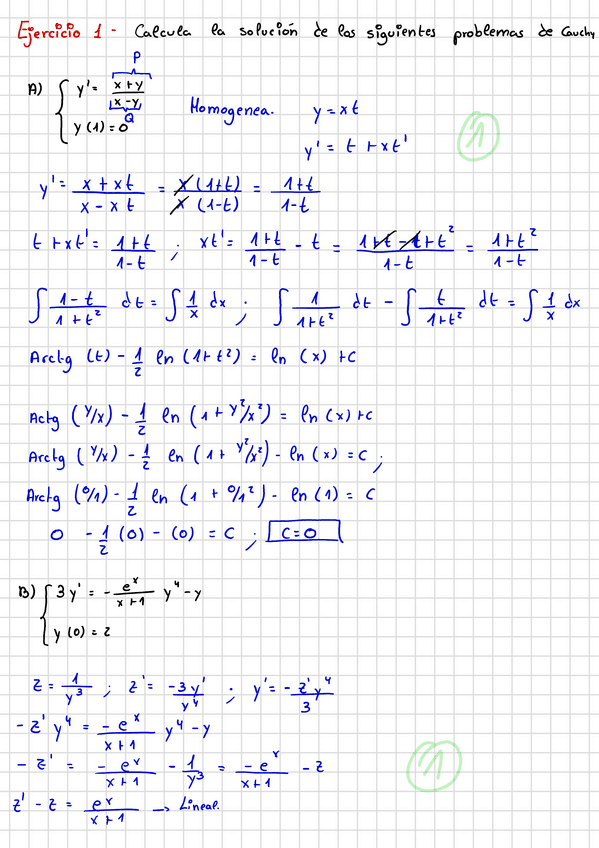 Ejercicio 1 - Calcula la solución de los siguientes problemas de Cauchy
P
A) { y' = (x+y)/(x-y)
Q
y(1) = 0
Homogenea. y = xt
y' = t + xt'
1
y' = (x + xt)/(x - xt) = x(1+t)/x(1-t) = (1+t)/(1-t)
t + xt' = (1+t)/(1-t) ; xt' = (1+t)/(1-t) - t = (1+t-t+t²)/(1-t) = (1+t²)/(1-t)
∫ (1-t)/(1+t²) dt = ∫ 1/x dx ; ∫ 1/(1+t²) dt - ∫ t/(1+t²) dt = ∫ 1/x dx
Arctg (t) - 1/2 ln (1+t²) = ln (x) + C
Actg (y/x) - 1/2 ln (1 + y²/x²) = ln (x) + C
Arctg (y/x) - 1/2 ln (1 + y²/x²) - ln (x) = C ;
Arctg (0/1) - 1/2 ln (1 + 0/1²) - ln (1) = C
0 - 1/2 (0) - (0) = C ; C=0
B) { 3y' = - e^x/(x+1) y⁴ - y
y(0) = 2
z = 1/y³ ; z' = -3y'/y⁴ ; y' = - z'y⁴/3
- z' y⁴ = - e^x/(x+1) y⁴ - y
- z' = - e^x/(x+1) - 1/y³ = - e^x/(x+1) - z
1
z' - z = e^x/(x+1) → Lineal.